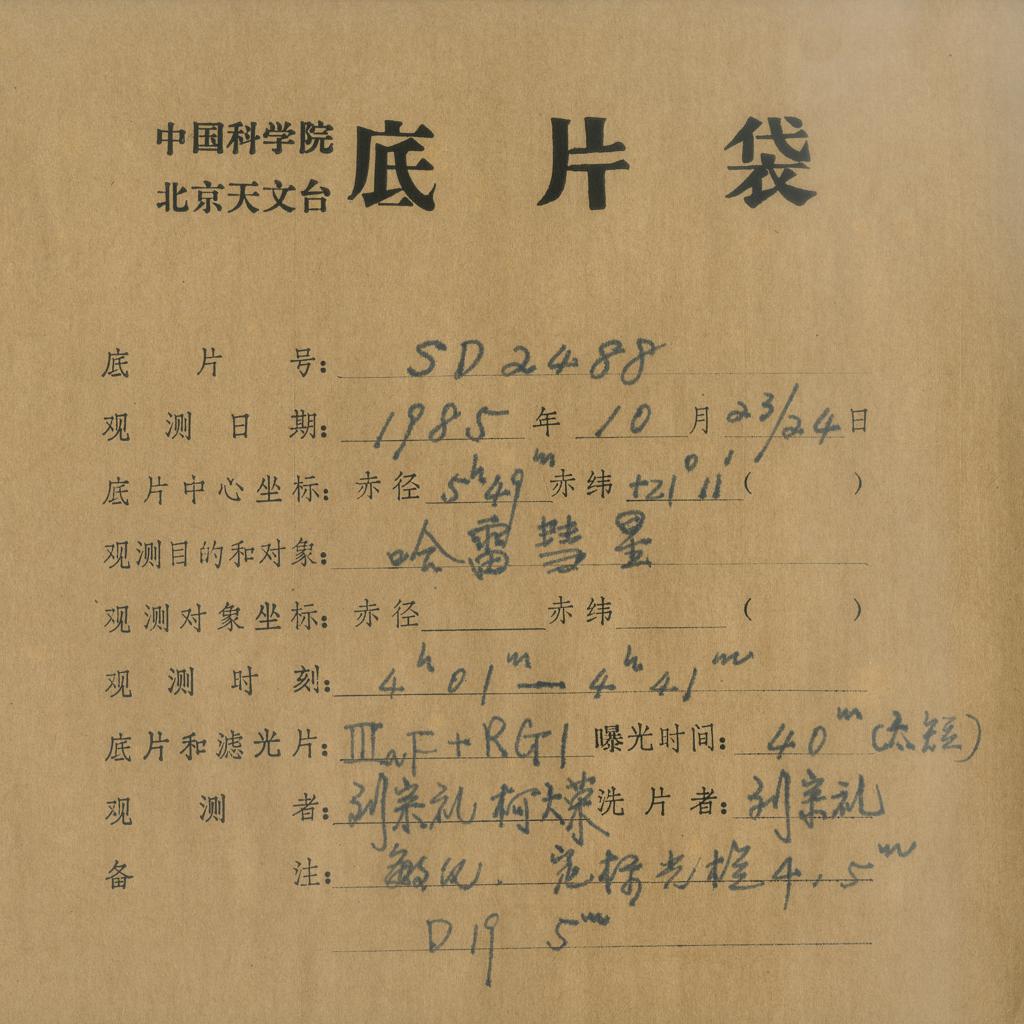 中国科学院
北京天文台
底片袋
底片号: SD2488
观测日期: 1985年10月23/24日
底片中心坐标: 赤径 5h49m 赤纬 +21°11′ ( )
观测目的和对象: 哈雷彗星
观测对象坐标: 赤径 赤纬 ( )
观测时刻: 4h01m — 4h41m
底片和滤光片: IIIaF+RG1 曝光时间: 40m (太短)
观测者: 刘宗礼 柯大荣 洗片者: 刘宗礼
备注: 敏化. 定标光楔 4, 5m
D19 5m